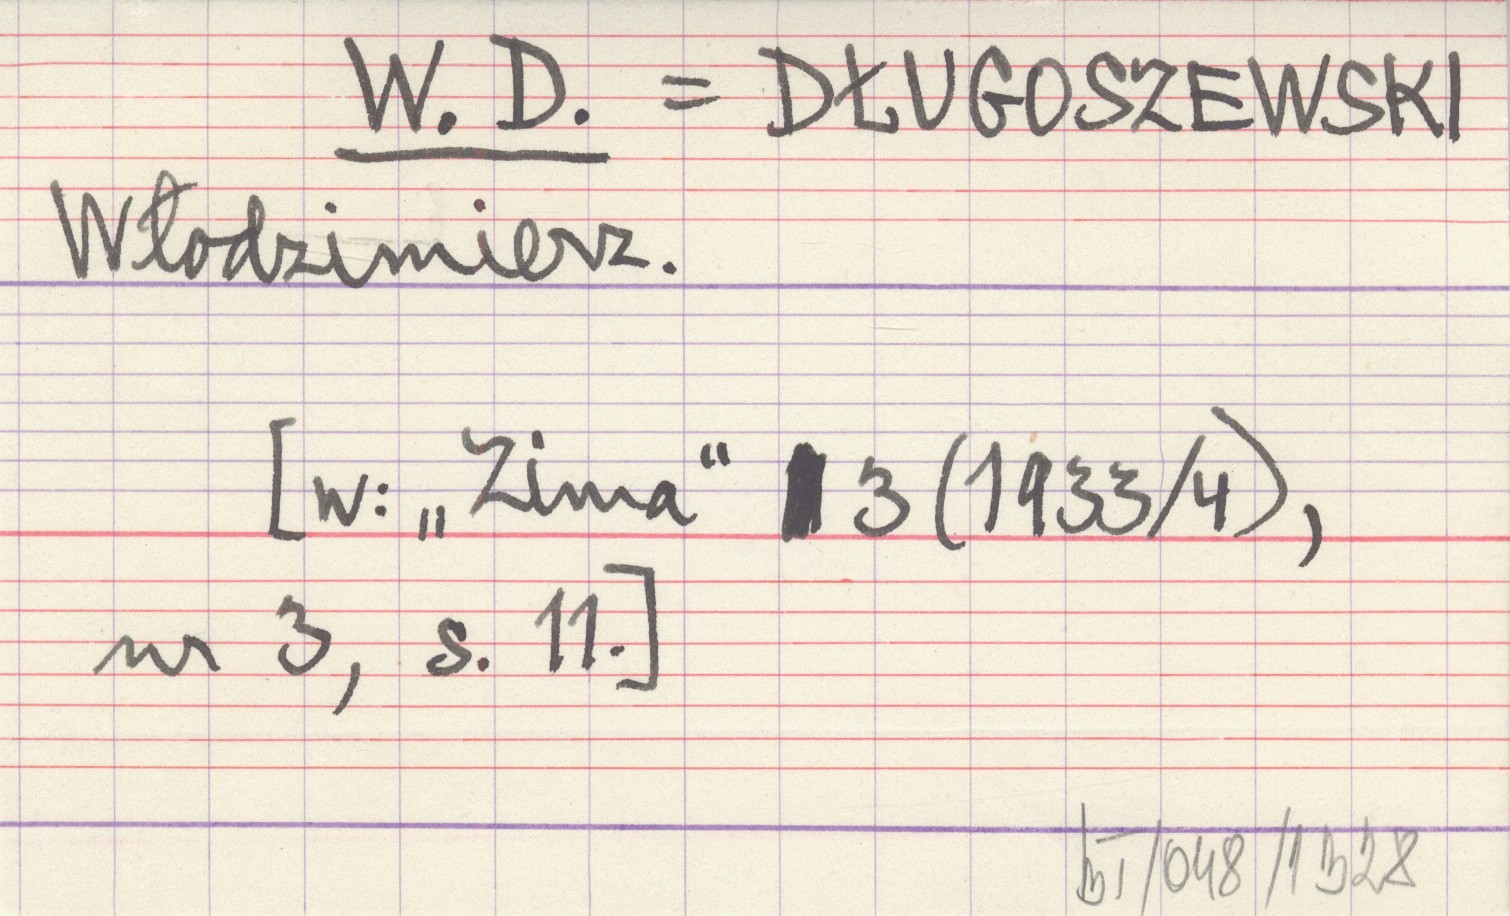 W. D. = DŁUGOSZEWSKI
Włodzimierz.
[w: „Zima“ 3 (1933/4),
nr 3, s. 11.]
/048/1328